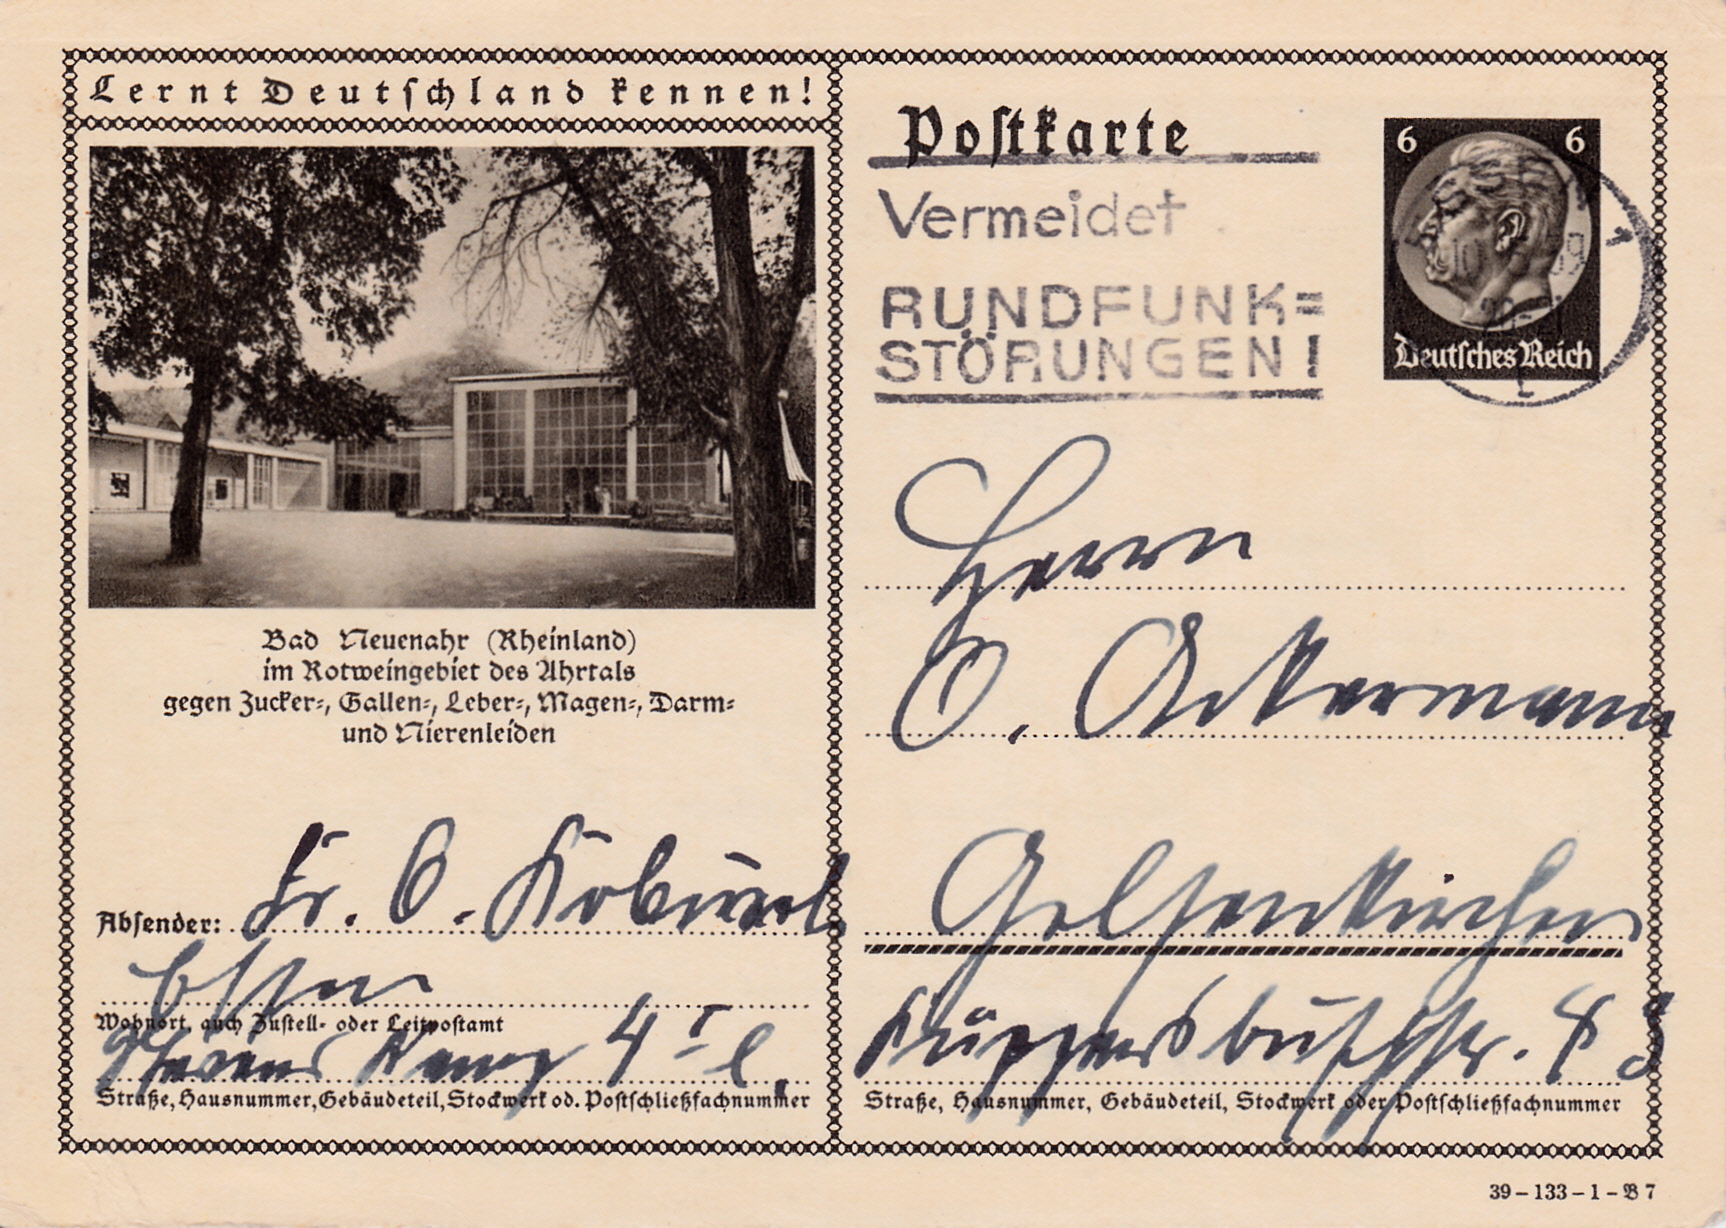 Lernt Deutschland kennen!
Bad Neuenahr (Rheinland)
im Rotweingebiet des Ahrtals
gegen Zucker-, Gallen-, Leber-, Magen-, Darm-
und Nierenleiden
Absender: Fr. O.
Essen
Wohnort, auch Zustell- oder Leitpostamt
4 I l.
Straße, Hausnummer, Gebäudeteil, Stockwerk od. Postschließfachnummer
Postkarte
Vermeidet
RUNDFUNK=
STÖRUNGEN!
6 6
39
Deutsches Reich
Herrn
O. Ackermann
Gelsenkirchen
Küppersbuschstr.
Straße, Hausnummer, Gebäudeteil, Stockwerk oder Postschließfachnummer
39-133-1-B 7